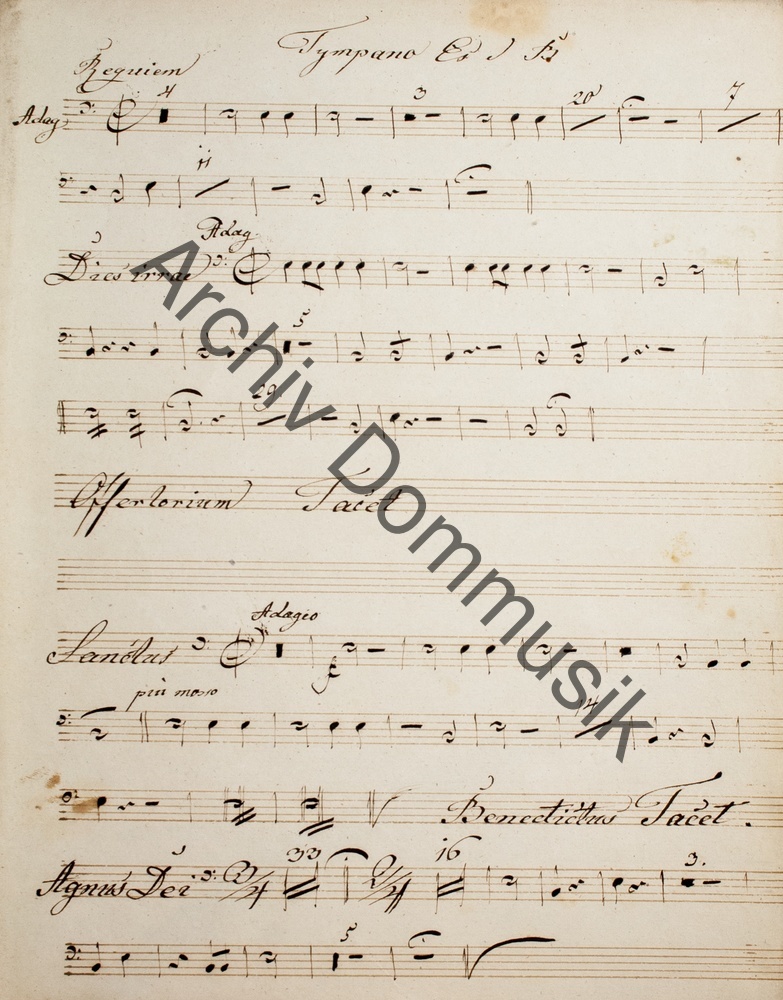 Tympano Es
Requiem
Adag.
4 3 20 7
11
Adag.
Dies irrae
5
29
Offertorium Tacet
Adagio
Sanctus
più mosso
14
Benedictus Tacet.
33 16 3.
Agnus Dei 3/4 2/4
5
Archiv Dommusik